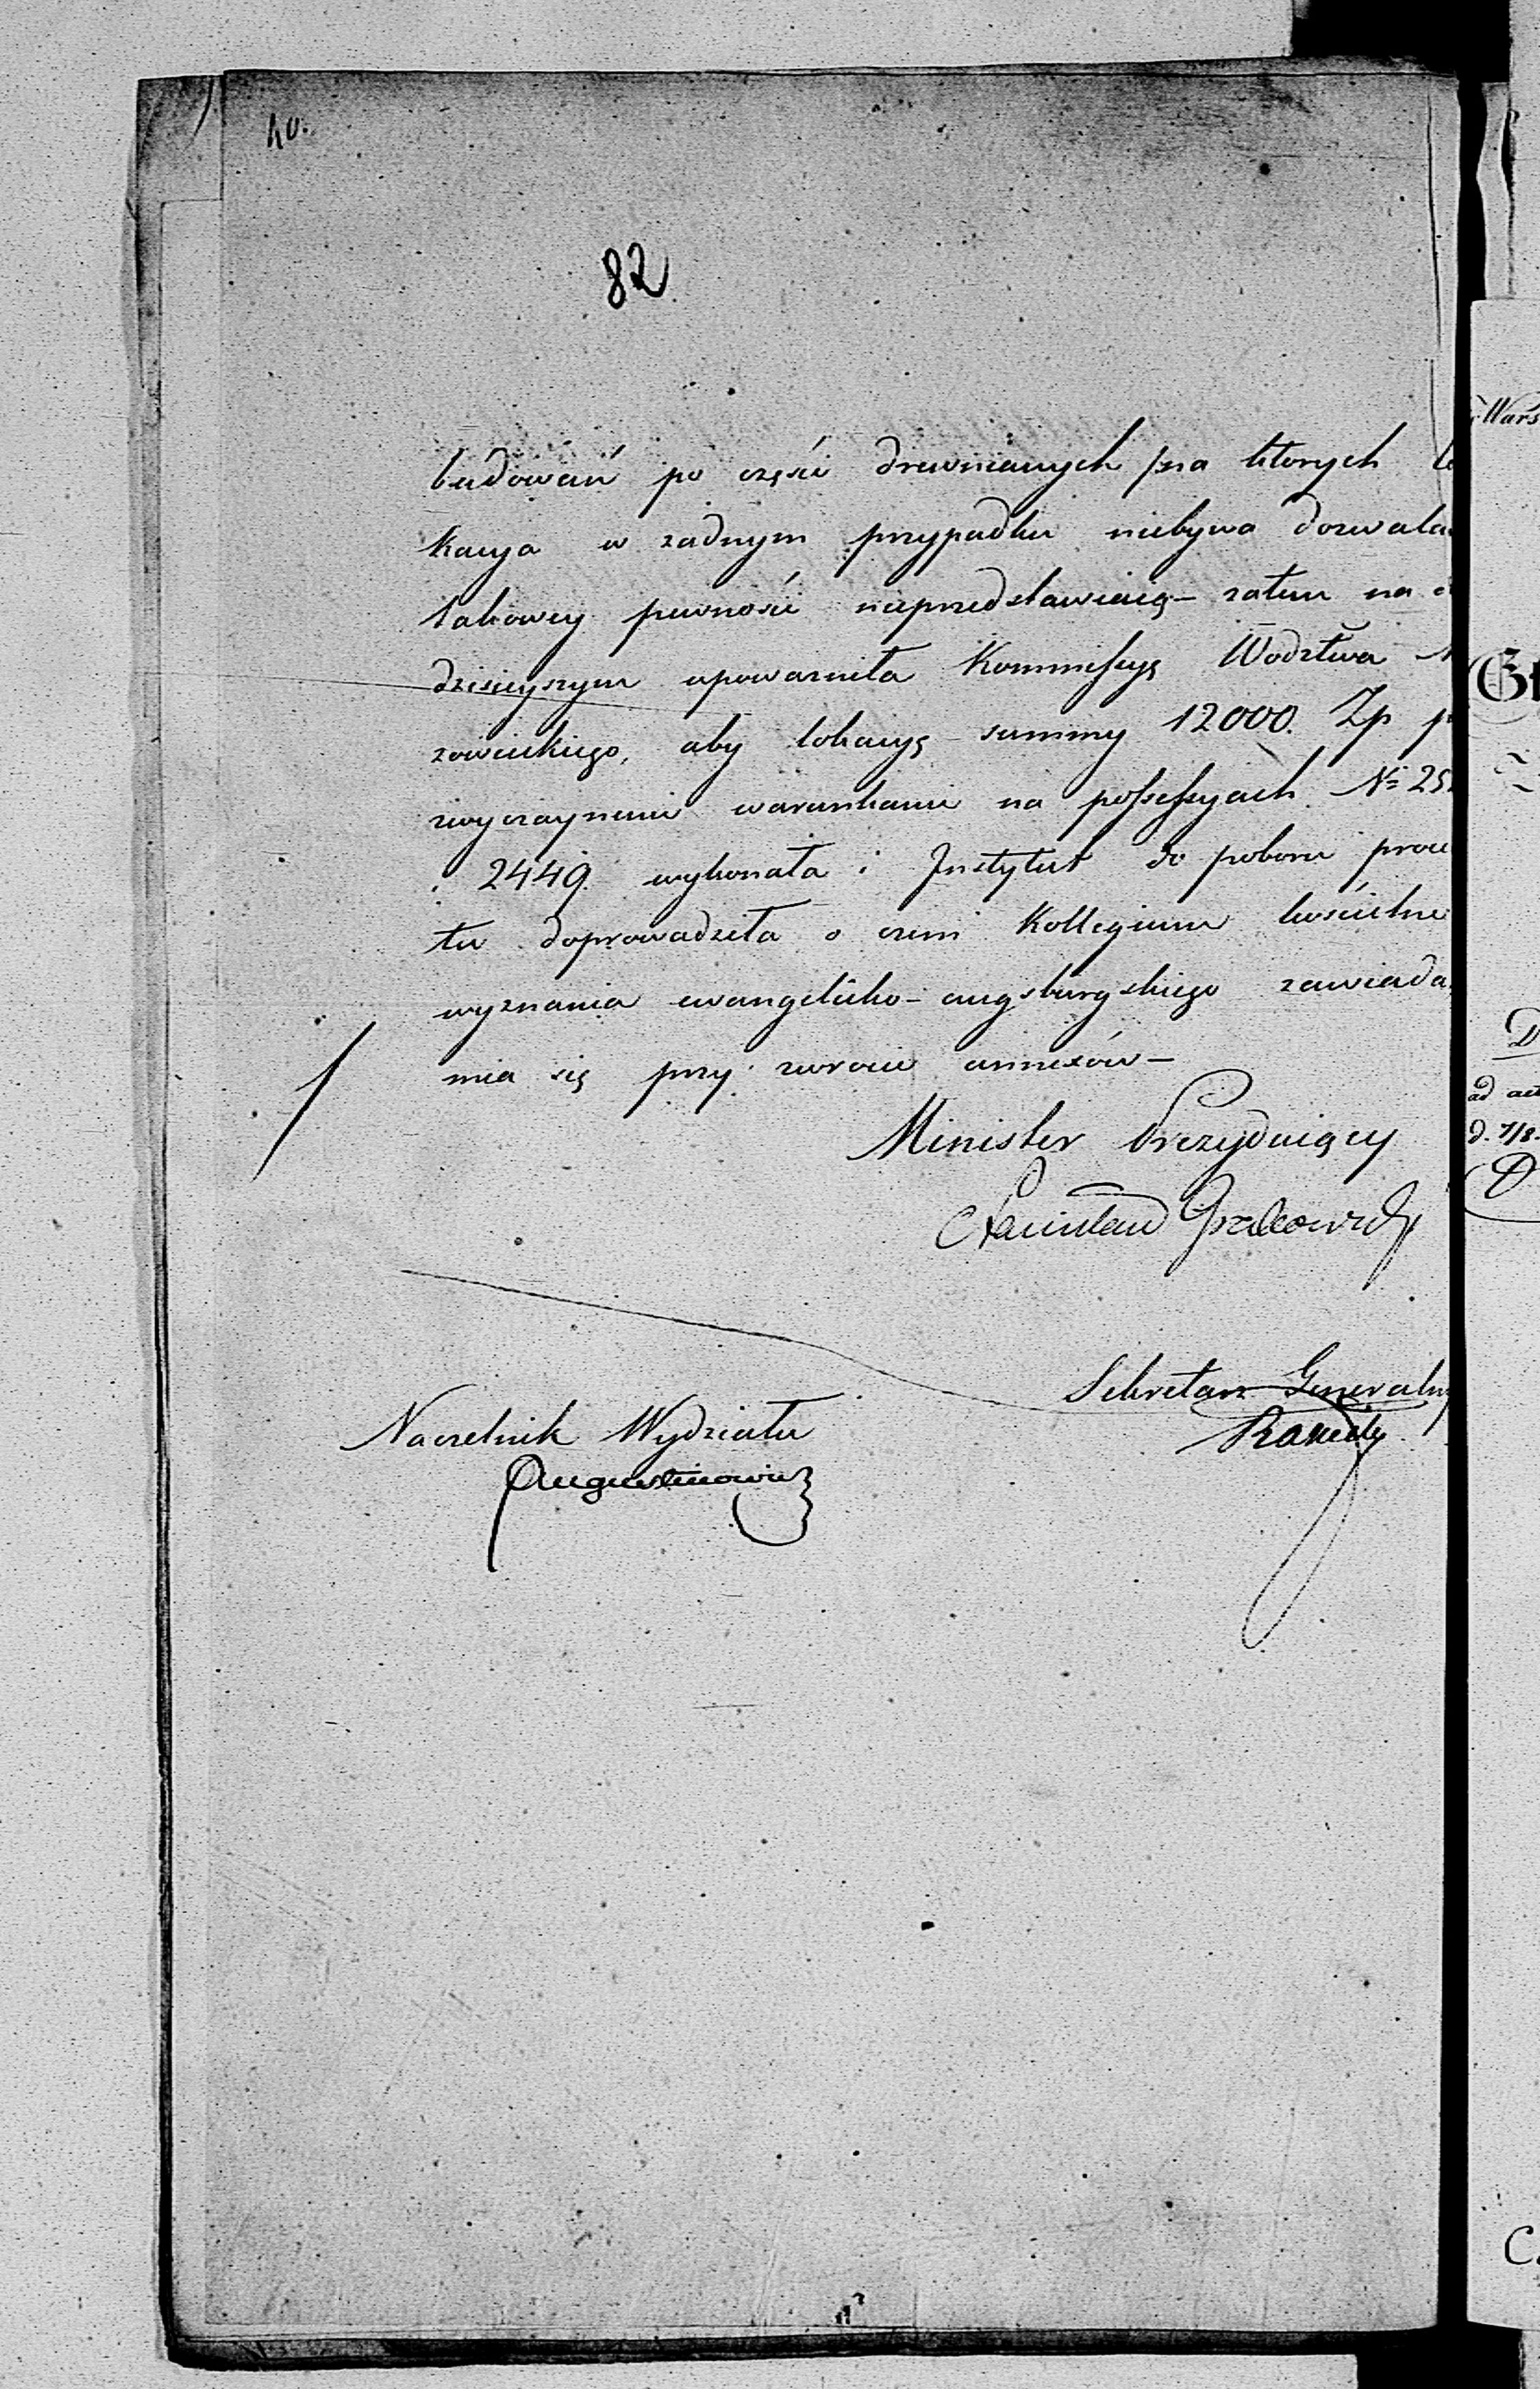 40.
82
budowań po części drewnianych /na których lo
kacya w żadnym przypadku niebywa dozwala
takowey pewności nieprzedstawiaią – zatem na d
dzisieyszym upoważniła Kommissyę Wodztwa M
zowieckiego, aby lokacyę summy 12000. Zp p
zwyczaynemi warunkami na possessyach Nº 25
i 2449. wykonała i Instytut do poboru proce
tu doprowadziła o czem Kollegium kościelne
wyznania ewangelicko-augsburgskiego zawiada
mia się przy zwrocie annexów –
Minister Prezyduiący
Stanisław Grabowski
Sekretarz Generalny
Naczelnik Wydziału
Augustinowicz
Wars
D
ad act
d. 7/8.